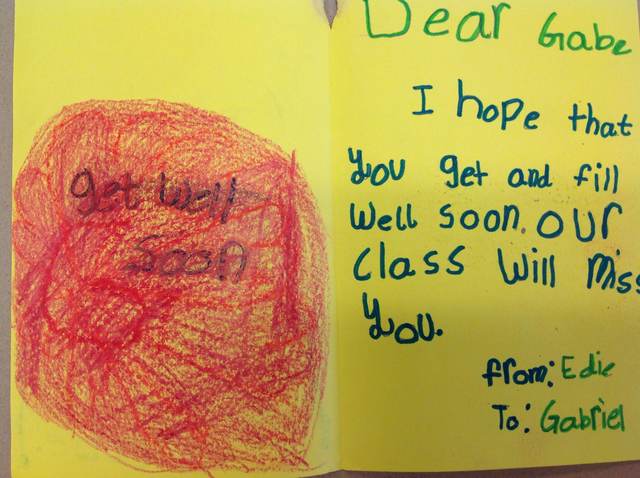 get well
soon
Dear Gabe
I hope that
you get and fill
well soon. our
class will miss
you.
from: Edie
To: Gabriel